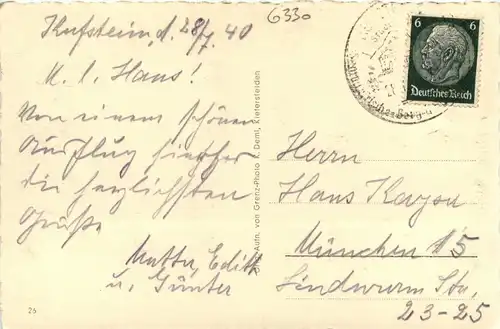 6330
Kufstein, d. 28/7. 40
M. l. Hans!
Von einem schönen
Ausflug hierher
die herzlichsten
Grüße
Mutter, Edith
u. Günter
Herrn
Hans Kayser
München 15
Lindwurm Str,
23-25
6 6
Deutsches Reich
Aufn. von Grenz-Photo K. Deml, Kiefersfelden
26